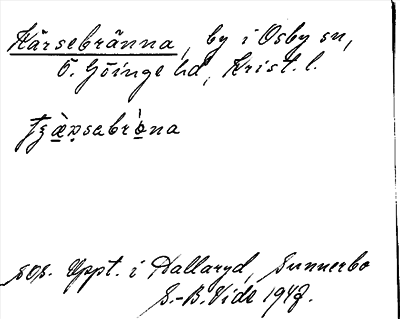 Kärsebränna, by i Osby sn,
Ö. Göinge hd, Krist. l.
sabr
na
sos. Uppt. i Hallaryd, Sunnerbo
S.-B. Vide 1947.